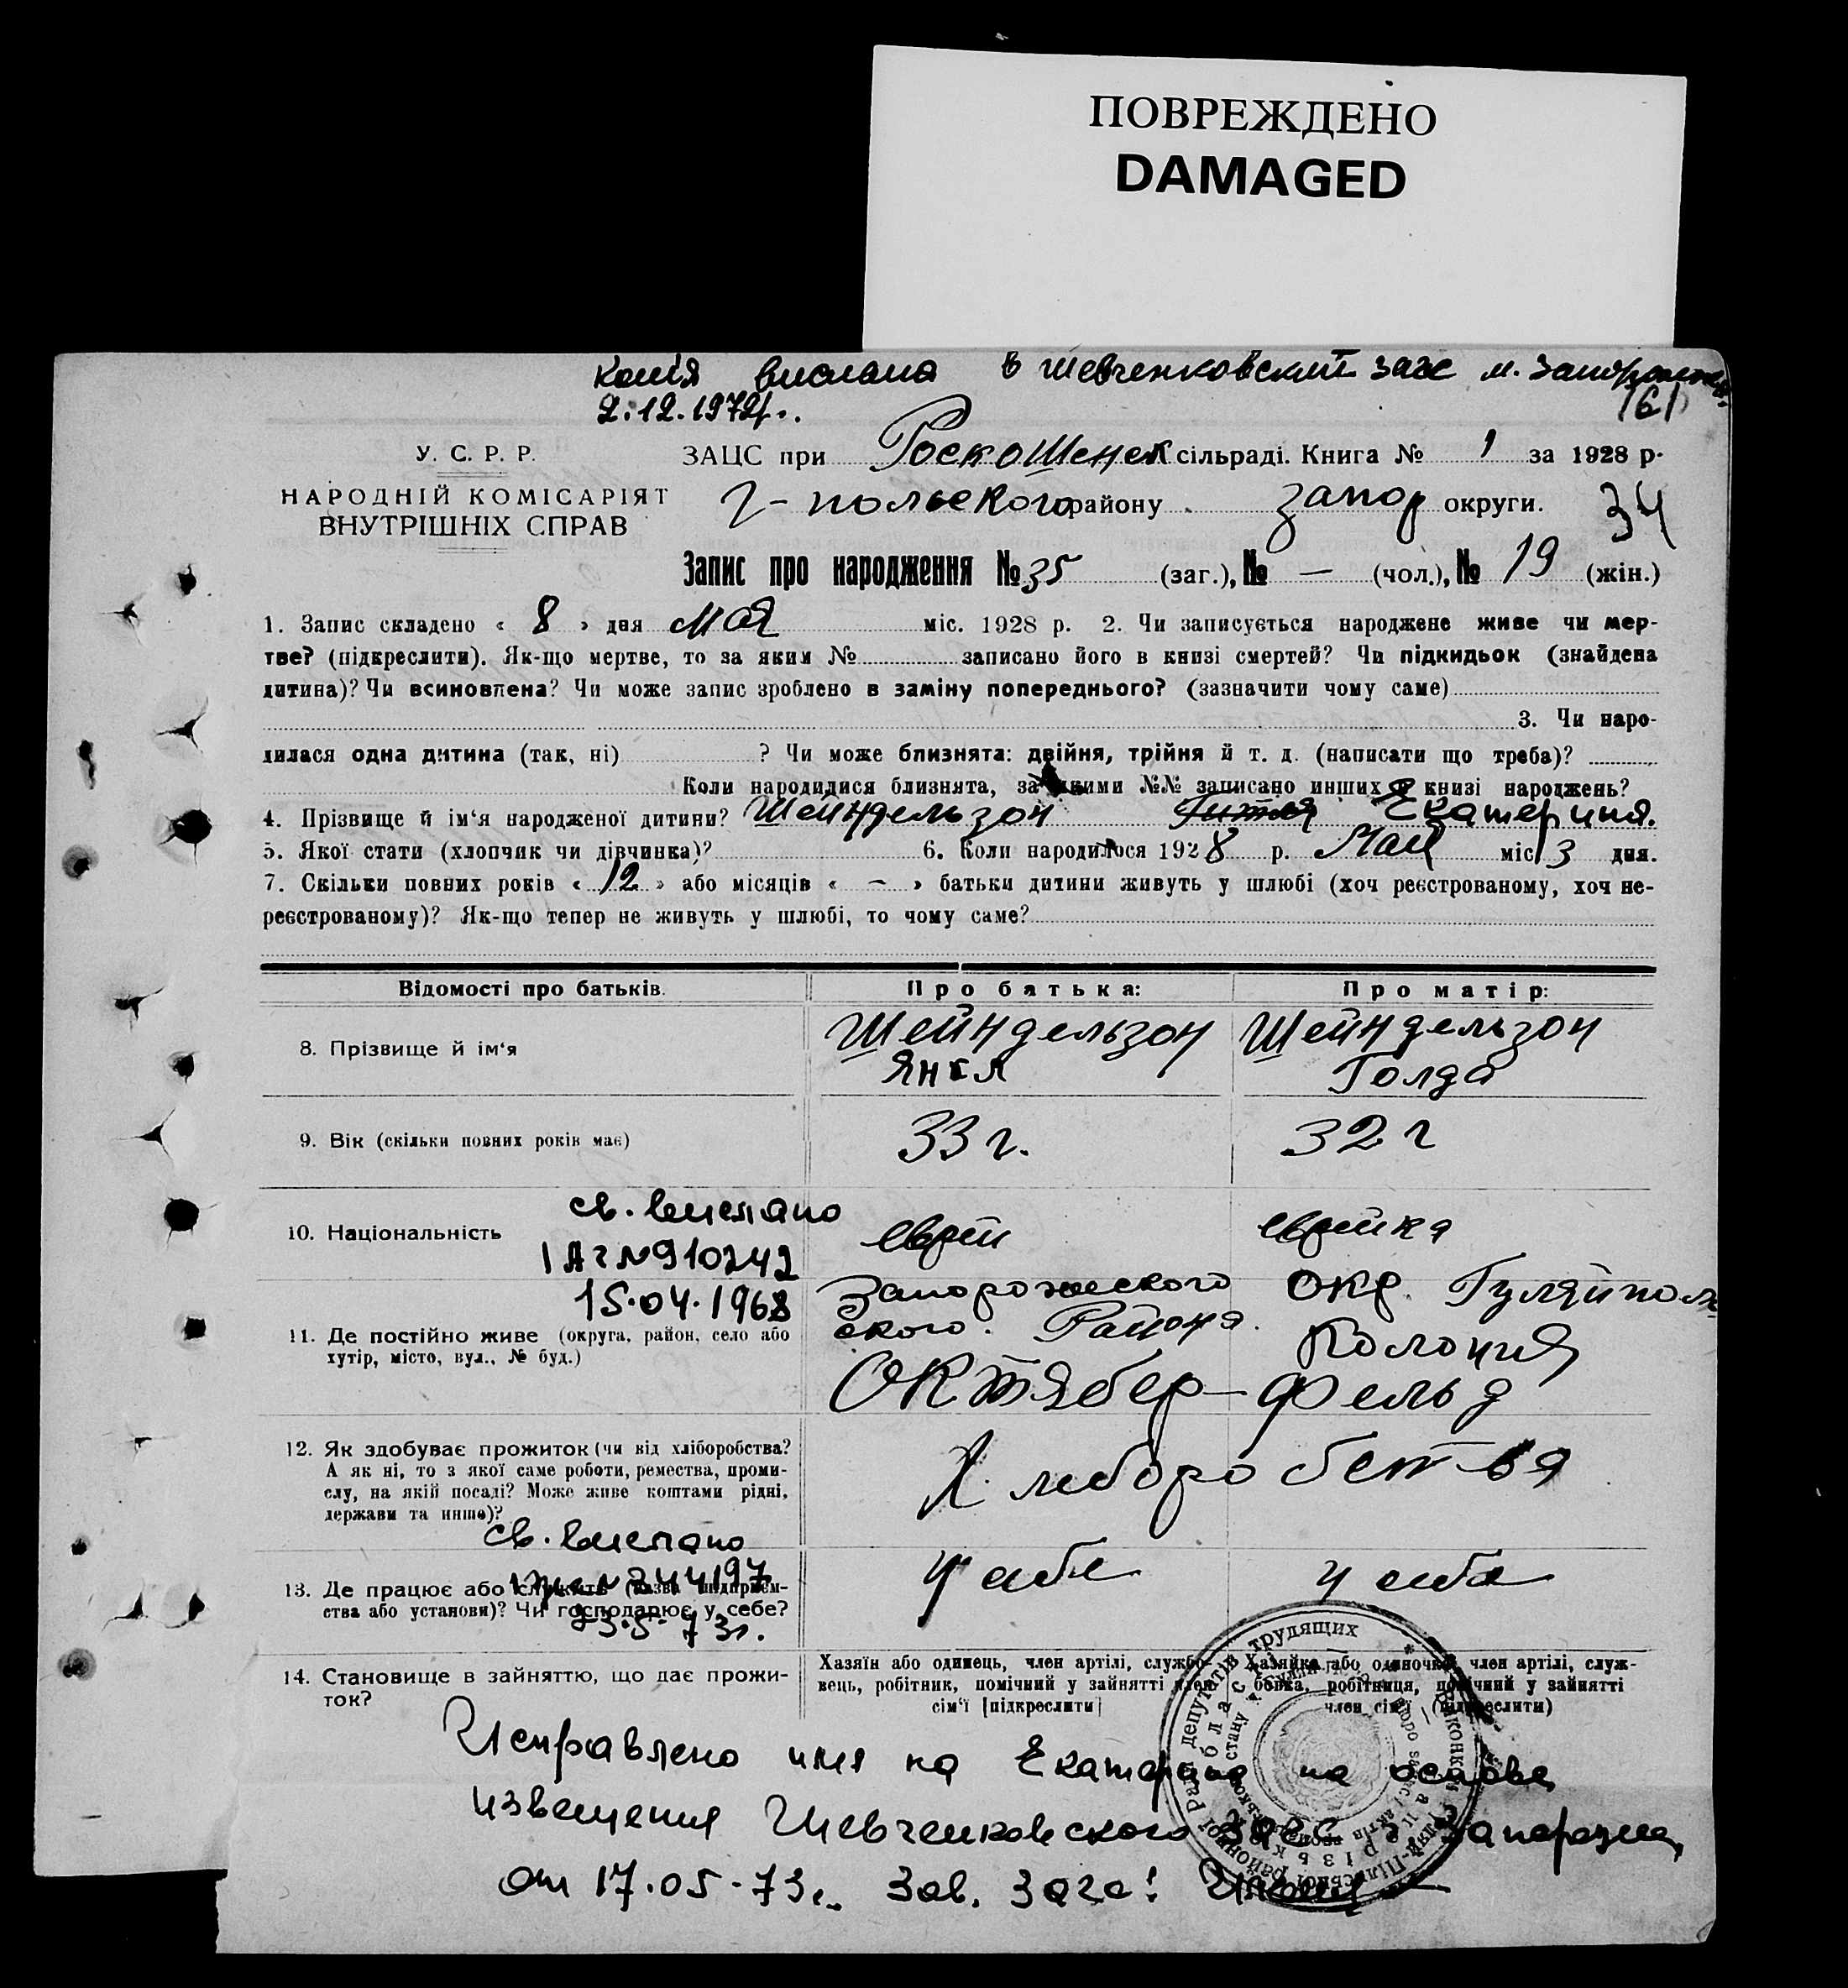 ПОВРЕЖДЕНО
DAMAGED
копія вислана в шевченковский загс м. Запорожжя
2.12.1972г.
161
У. С. Р. Р.
НАРОДНІЙ КОМІСАРІЯТ
ВНУТРІШНІХ СПРАВ
ЗАЦС при Роскошенск сільраді. Книга № 1 за 1928 р.
Г-польского району Запор округи. 34
Запис про народження № 35 (заг.), № — (чол.), № 19 (жін.)
1. Запис складено « 8 » дня Мая міс. 1928 р. 2. Чи записується народжене живе чи мер-
тве? (підкреслити). Як-що мертве, то за яким № записано його в книзі смертей? Чи підкидьок (знайдена
дитина)? Чи всиновлена? Чи може запис зроблено в заміну попереднього? (зазначити чому саме)
3. Чи наро-
дилася одна дитина (так, ні) ? Чи може близнята: двійня, трійня й т. д. (написати що треба)?
Коли народидися близнята, за якими №№ записано инших в книзі народжень?
4. Прізвище й ім'я народженої дитини? Шейндельзон Гитля Екатерина.
5. Якої стати (хлопчик чи дівчинка)? 6. Коли народилося 1928 р. Май міс 3 дня.
7. Скільки повних років « 12 » або місяців « — » батьки дитини живуть у шлюбі (хоч реєстрованому, хоч не-
реєстрованому)? Як-що тепер не живуть у шлюбі, то чому саме?
Відомості про батьків. Про батька: Про матір:
8. Прізвище й ім'я Шейндельзон Янкл Шейндельзон Голда
9. Вік (скільки повних років має) 33 г. 32 г
св. вислано
10. Національність еврей еврейка
15.04.1968
Запорожского окр. Гуляйполь
ского. Района. Колония
Октябер-фельд
11. Де постійно живе (округа, район, село або
хутір, місто, вул., № буд.)
12. Як здобуває прожиток (чи від хліборобства?
А як ні, то з якої саме роботи, ремества, проми-
слу, на якій посаді? Може живе коштами рідні,
держави та инше)?
Хлеборобства
св. вислано
13. Де працює або служить (назва підприєм-
ства або установи)? Чи господарює у себе?
23.5.73г.
У себе У себе
14. Становище в зайняттю, що дає прожи-
ток?
Хазяїн або одинець, член артілі, службо-
вець, робітник, помічний у зайнятті член
сім'ї [підкреслити]
Хазяйка або одиночка член артілі, служ-
бовка, робітниця, помічний у зайнятті
член сім'ї (підкреслити)
Исправлено имя на Екатерина на основ
извещения Шевченковского ЗАГС г. Запорожья
от 17.05.73г. Зав. Загс: